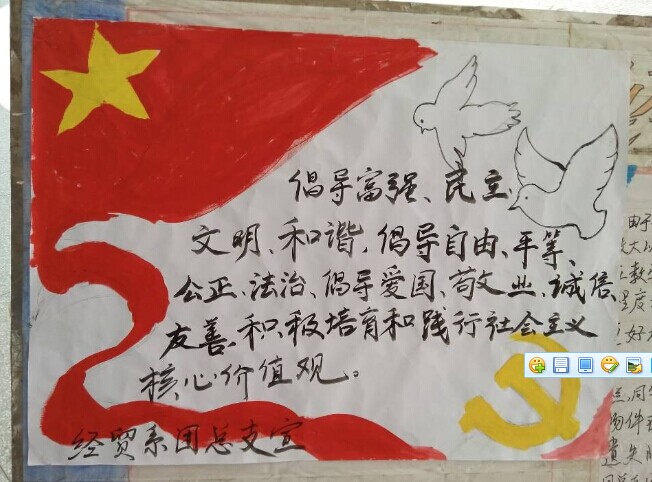 倡导富强、民主、
文明、和谐,倡导自由、平等、
公正、法治、倡导爱国、敬业、诚信、
友善,积极培育和践行社会主义
核心价值观。
经贸系团总支宣